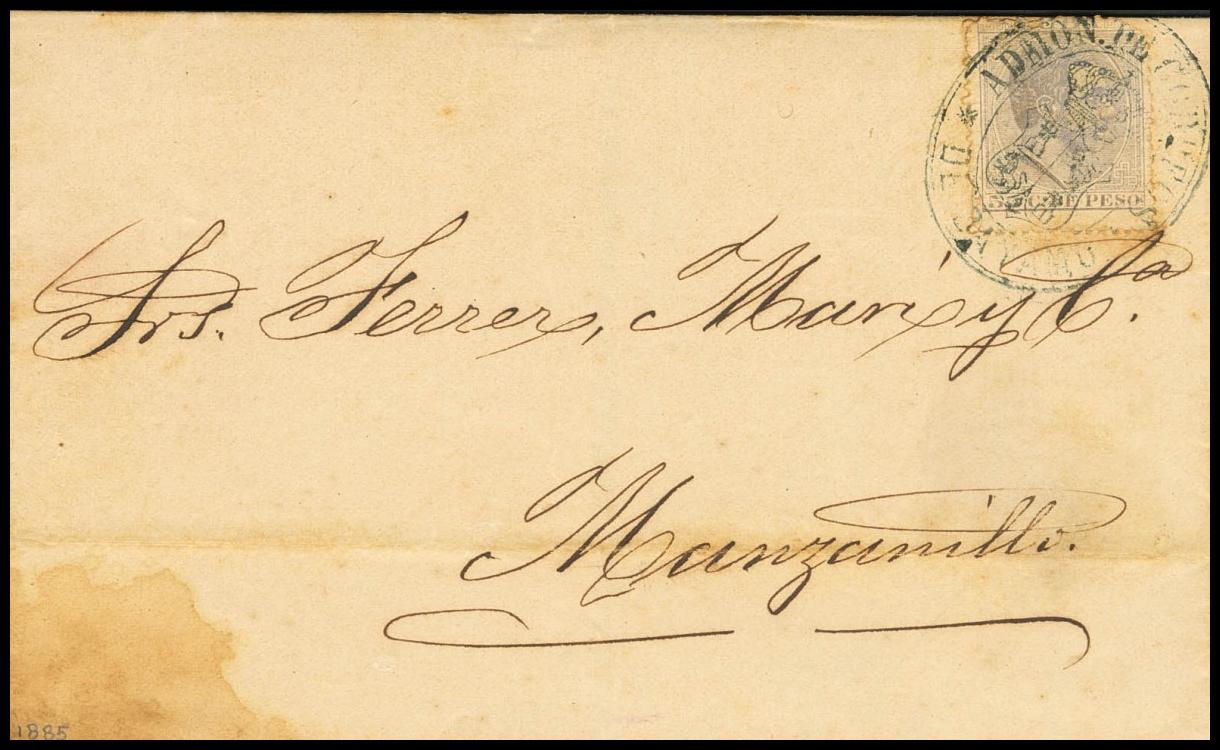 ADMON. DE CORREOS
DE BAYAMO
5 C. DE PESO
Srs. Ferrer, Mari y Cª.
Manzanillo.
1885